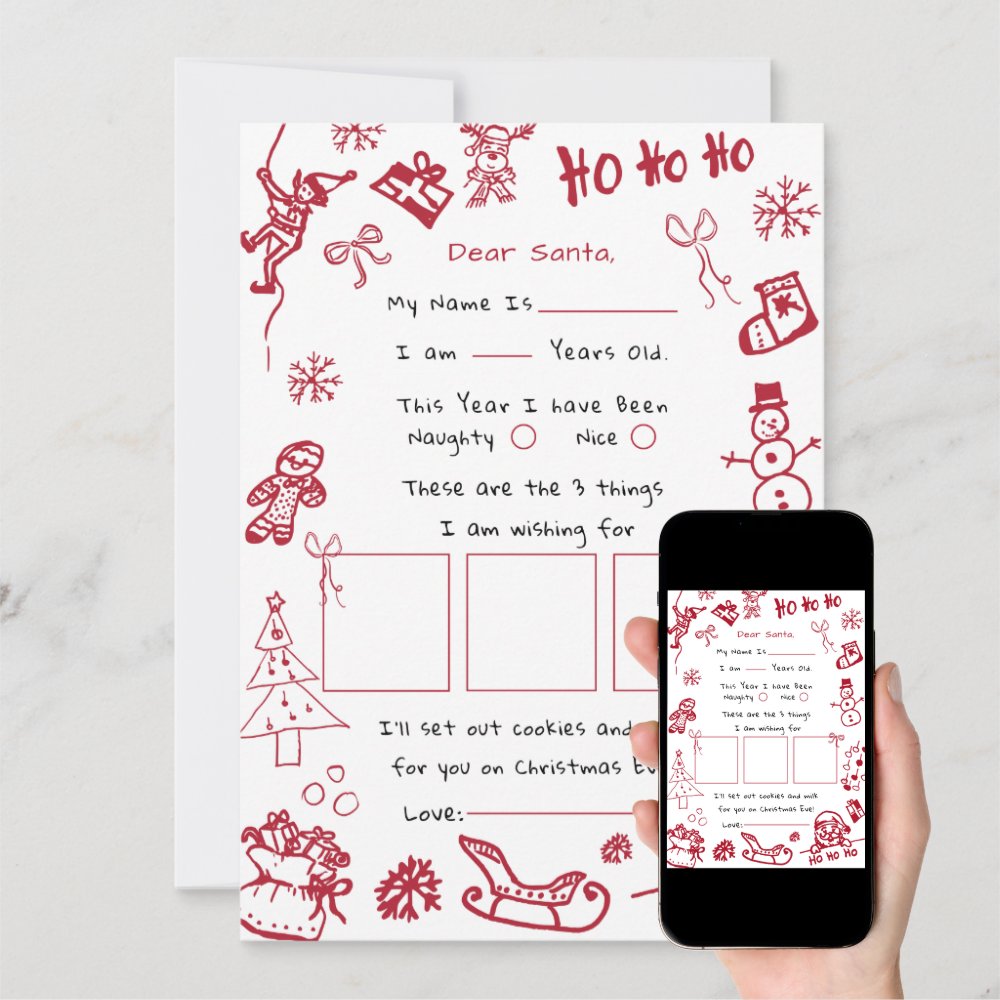 HO HO HO
Dear Santa,
My Name Is
I am Years Old.
This Year I have Been
Naughty Nice
These are the 3 things
I am wishing for
I'll set out cookies and
for you on Christmas Eve
Love:
HO HO HO
Dear Santa,
My Name Is
I am Years Old.
This Year I have Been
Naughty Nice
These are the 3 things
I am wishing for
I'll set out cookies and milk
for you on Christmas Eve!
Love:
HO HO HO